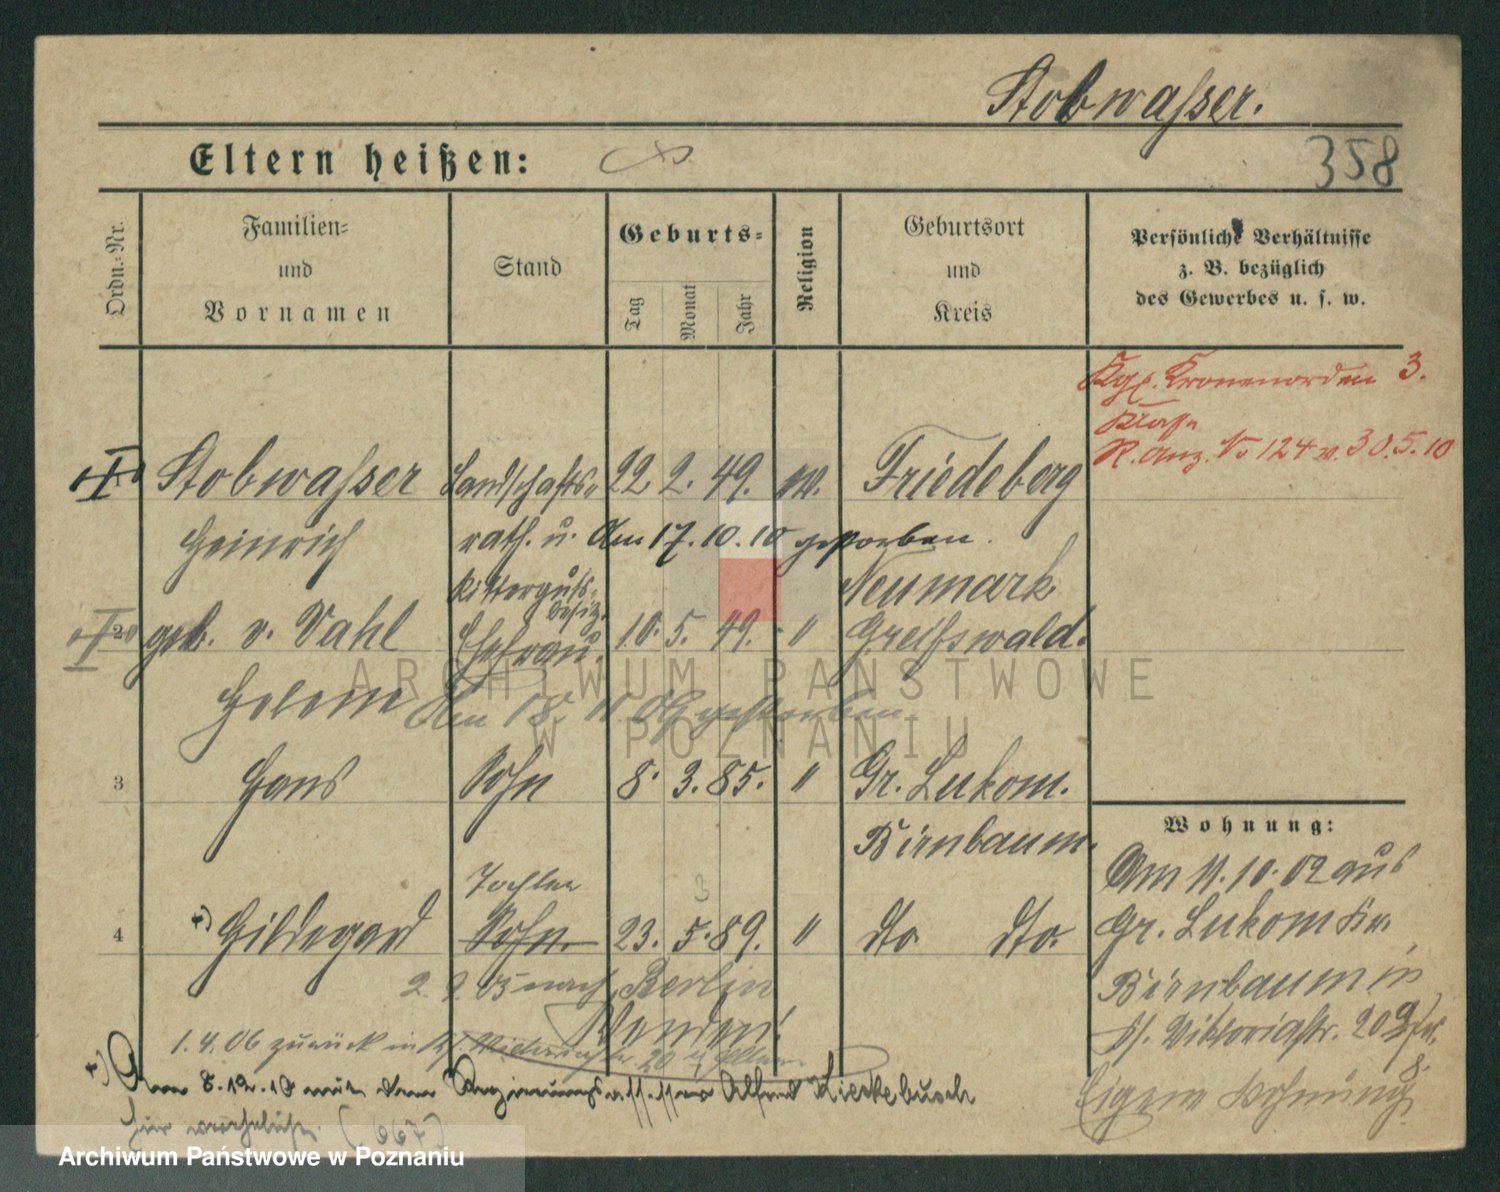 Stobwasser.
358
Eltern heißen:
Ordn.-Nr.
Familien-
und
Vornamen
Stand
Geburts-
Tag
Monat
Jahr
Religion
Geburtsort
und
Kreis
Persönliche Verhältnisse
z. B. bezüglich
des Gewerbes u. s. w.
Kgl. Kronenorden 3.
Klasse
R. Anz. No 124 v. 30.5.10
1 Stobwasser Landschafts- 22. 2. 49. ev. Friedeberg
Heinrich rath. u. Am 17.10.10 gestorben.
Ritterguts- Neumark
besitz.
2 geb. v. Vahl Ehefrau. 10. 5. 49. " Greifswald.
Helene Am 18. 11. 09 gestorben
3 Hans Sohn 8. 3. 85. " Gr. Lukom.
Birnbaum.
Tochter 3
4 +) Hildegard Sohn. 23. 5. 89. " dto. dto.
2. 9. 03 nach Berlin
1.4.06 zurück in
+) Am 8.12.10 mit dem Regierungsassessor Alfred Kieckebusch
Wohnung:
Am 11.10.02 aus
Gr. Lukom Kr.
Birnbaum in
Viktoriastr. 20
Eigene Wohnung
ARCHIWUM PAŃSTWOWE
W POZNANIU
Archiwum Państwowe w Poznaniu